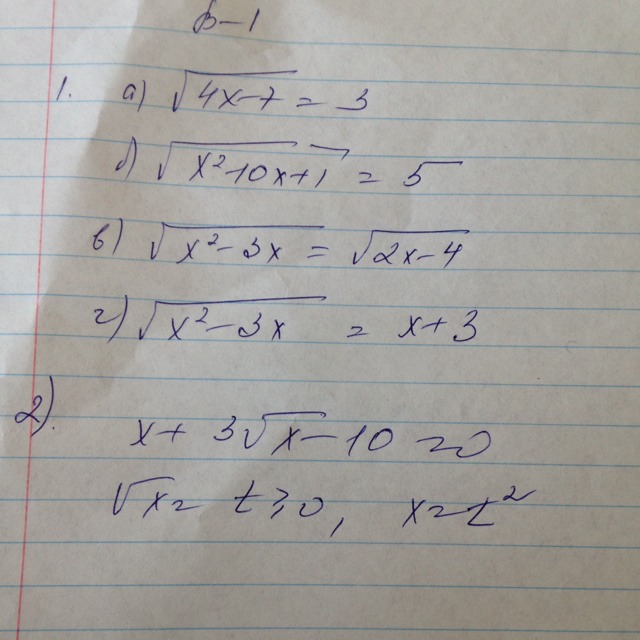 В-1
1. а) √4x-7 = 3
б) √x²-10x+1 = 5
в) √x²-3x = √2x-4
г) √x²-3x = x+3
2). x+ 3√x-10 =0
√x= t≥0, x=t²